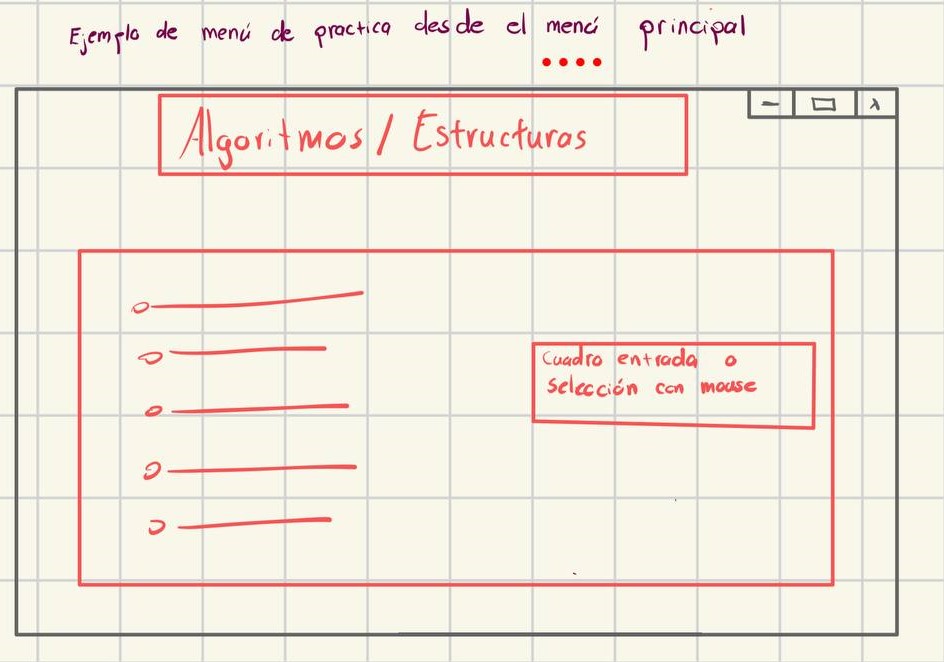 Ejemplo de menú de practica desde el menú principal
Algoritmos / Estructuras
Cuadro entrada o
Selección con mouse